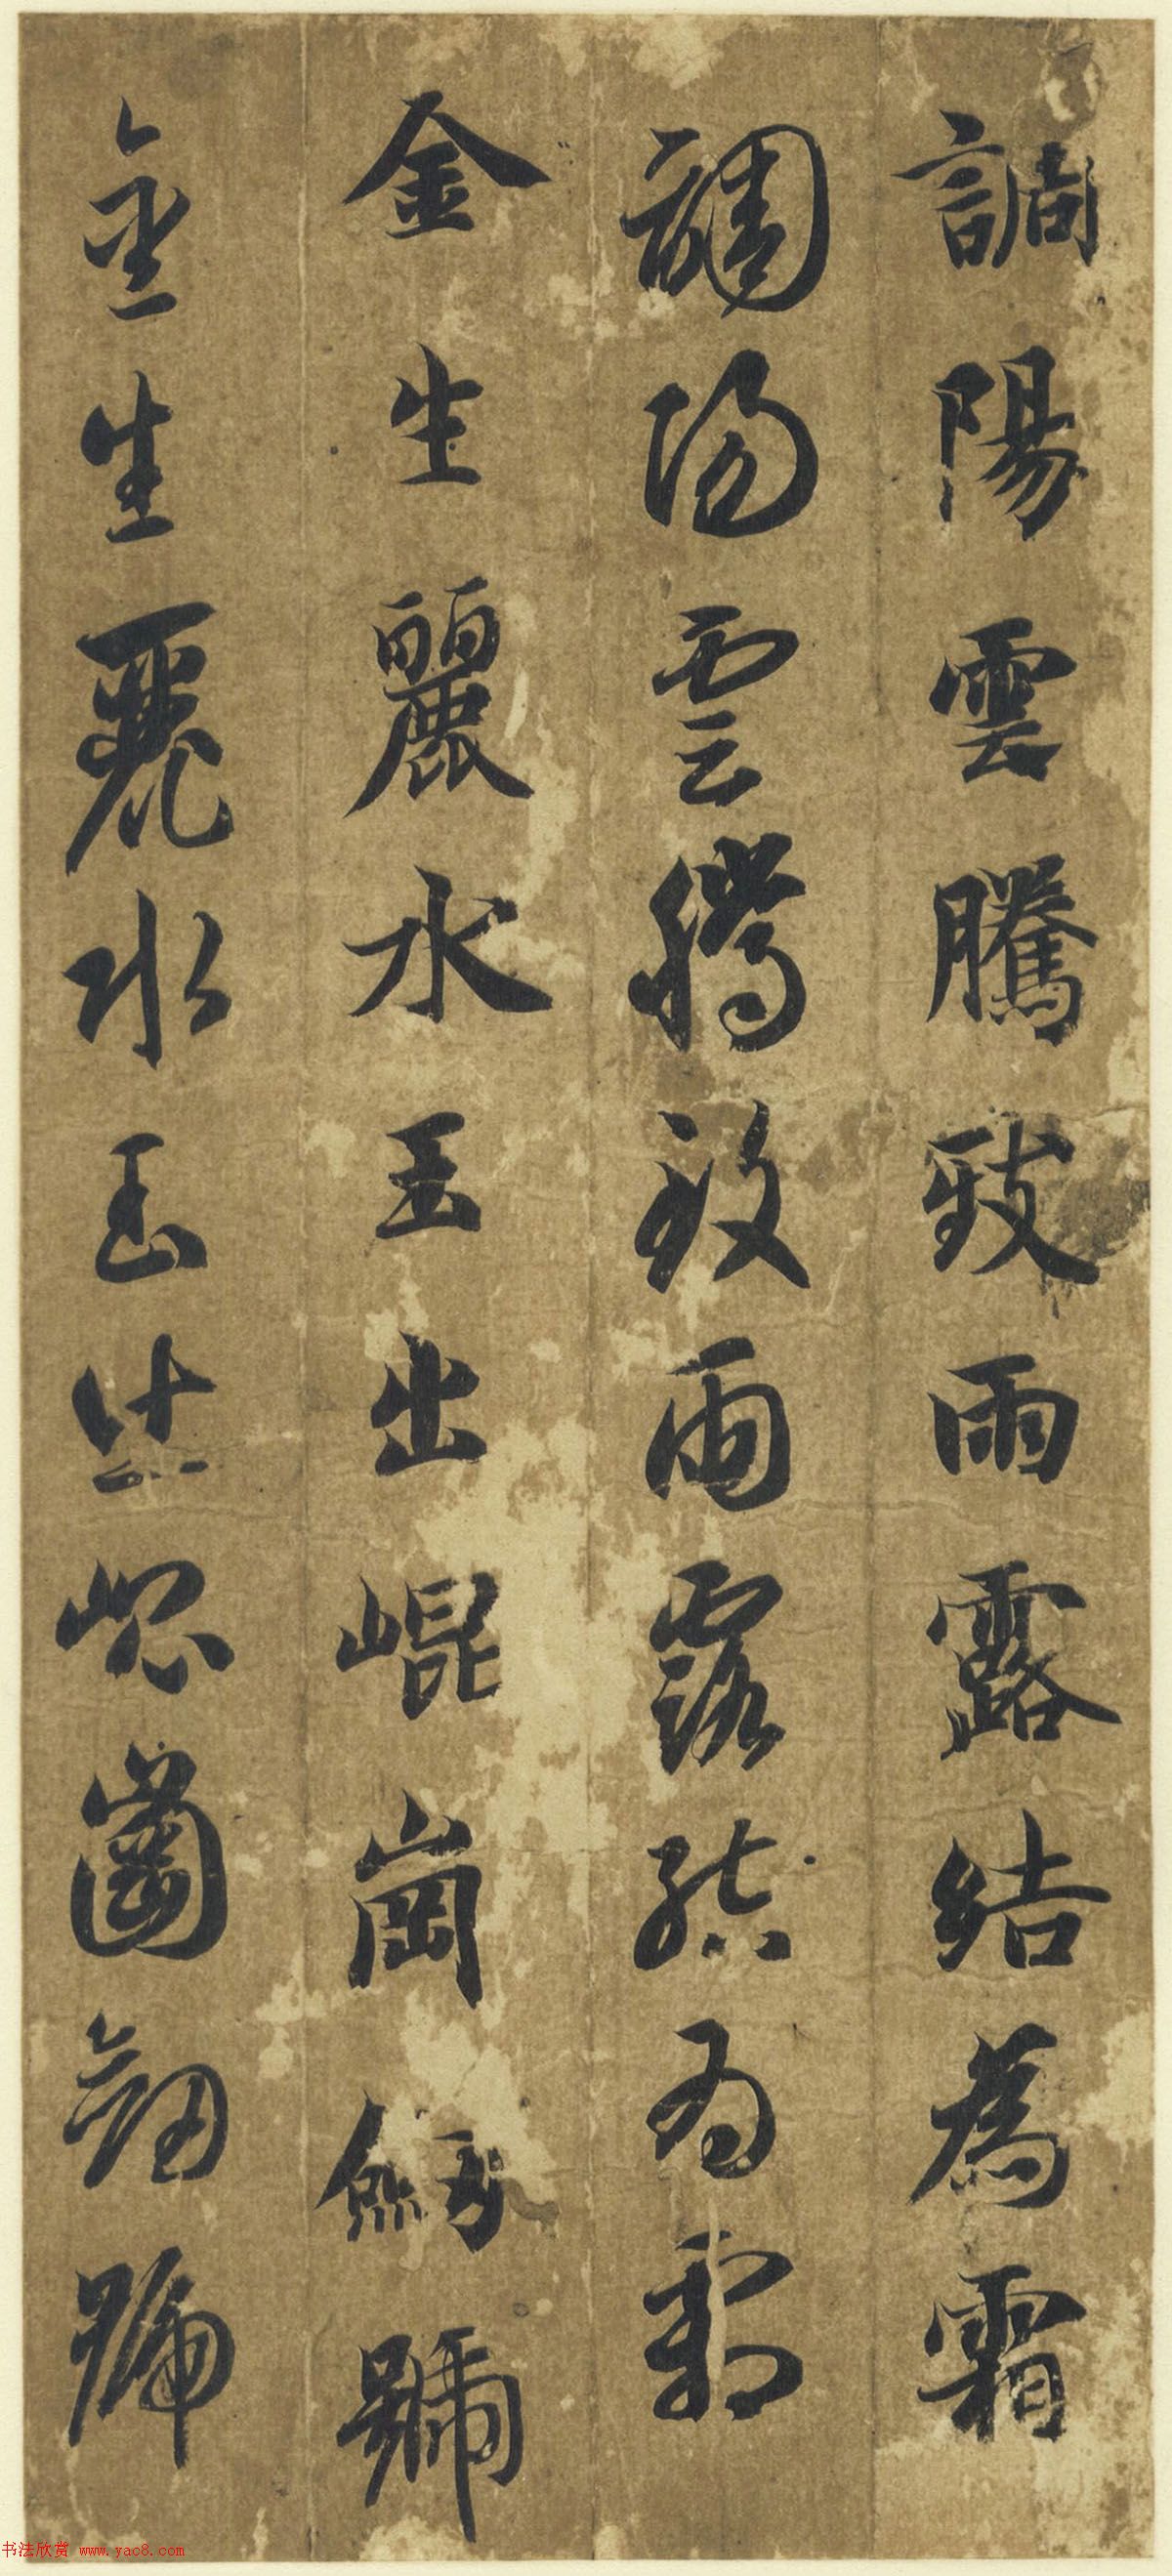 調陽雲騰致雨露結為霜
調陽雲騰致雨露結為霜
金生麗水玉出崐崗劍號
金生麗水玉出崐崗劍號
书法欣赏 www.yac8.com